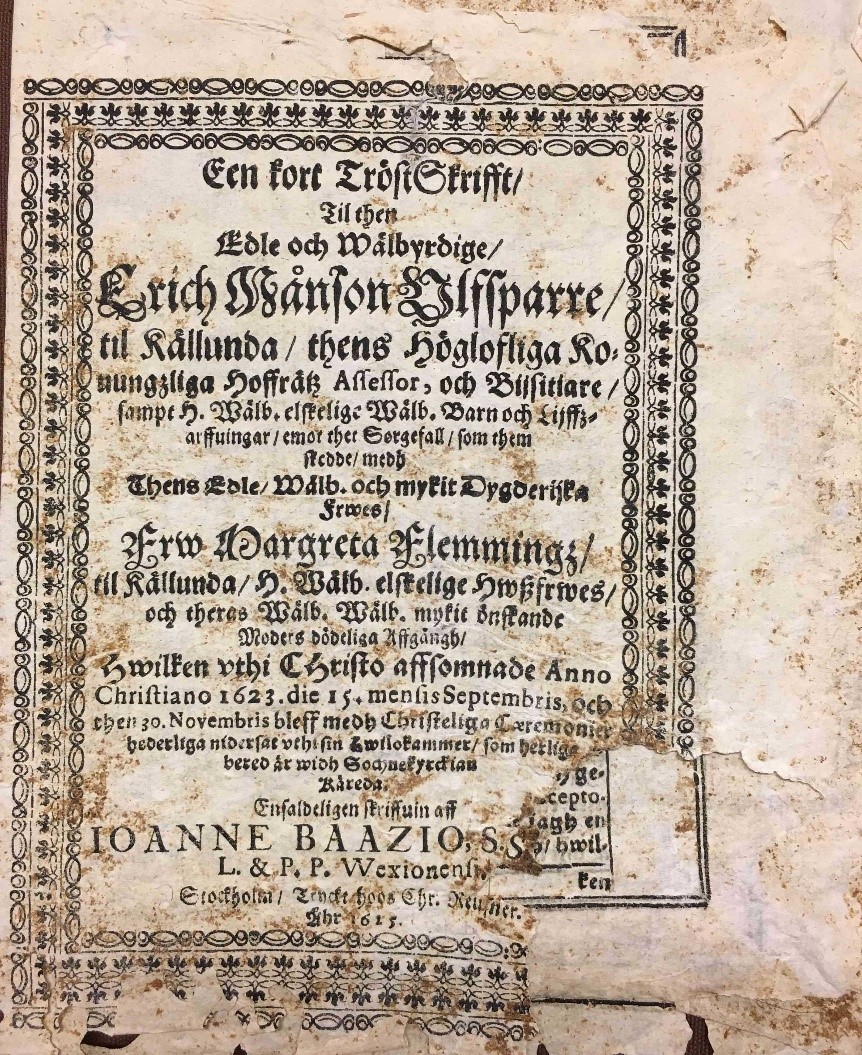 Een kort TröstSkrifft/
Til then
Edle och Wälbyrdige/
Erich Månson Ulfsparre/
til Källunda / thens Höglofliga Ko-
nungzliga Hoffrätz Assessor, och Bijsitiare /
sampt H. Wälb. elskelige Wälb. Barn och Lijffz-
arffuingar / emot thet Sorgefall / som them
skedde / medh
Thens Edle / Wälb. och mykit Dygderijka
Frwes /
Frw Margreta Flemmingz /
til Källunda / H. Wälb. elskelige Hwßfrwes /
och theras Wälb. Wälb. mykit önskande
Moders dödeliga Affgångh /
Hwilken vthi CHristo affsomnade Anno
Christiano 1623. die 15. mensis Septembris, och
then 30. Novembris bleff medh Christeliga Cæremonier
hederliga nidersat vthi sin Hwilokammer / som herliga
bered är widh Sochnekyrckian
Käreda.
Enfaldeligen skriffuin aff
IOANNE BAAZIO, S. S.
L. & P. P. Wexionensi.
Stockholm / Tryckt hoos Chr. Reusner.
Åhr 1615.
ge-
cepto-
iagh en
/ hwil-
ken